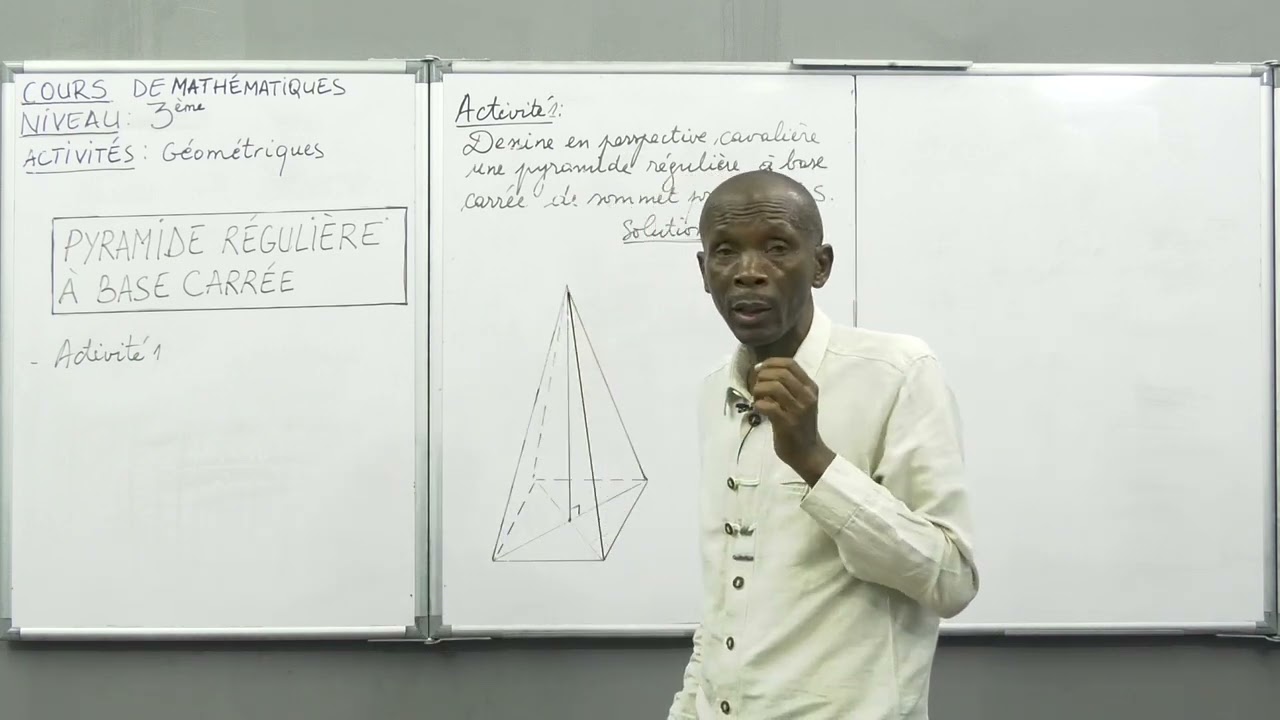 COURS DE MATHÉMATIQUES
NIVEAU: 3ème
ACTIVITÉS: Géométriques
PYRAMIDE RÉGULIÈRE
À BASE CARRÉE
- Activité 1
Activité 1:
Dessine en perspective cavalière
une pyramide régulière à base
carrée de sommet S.
Solution